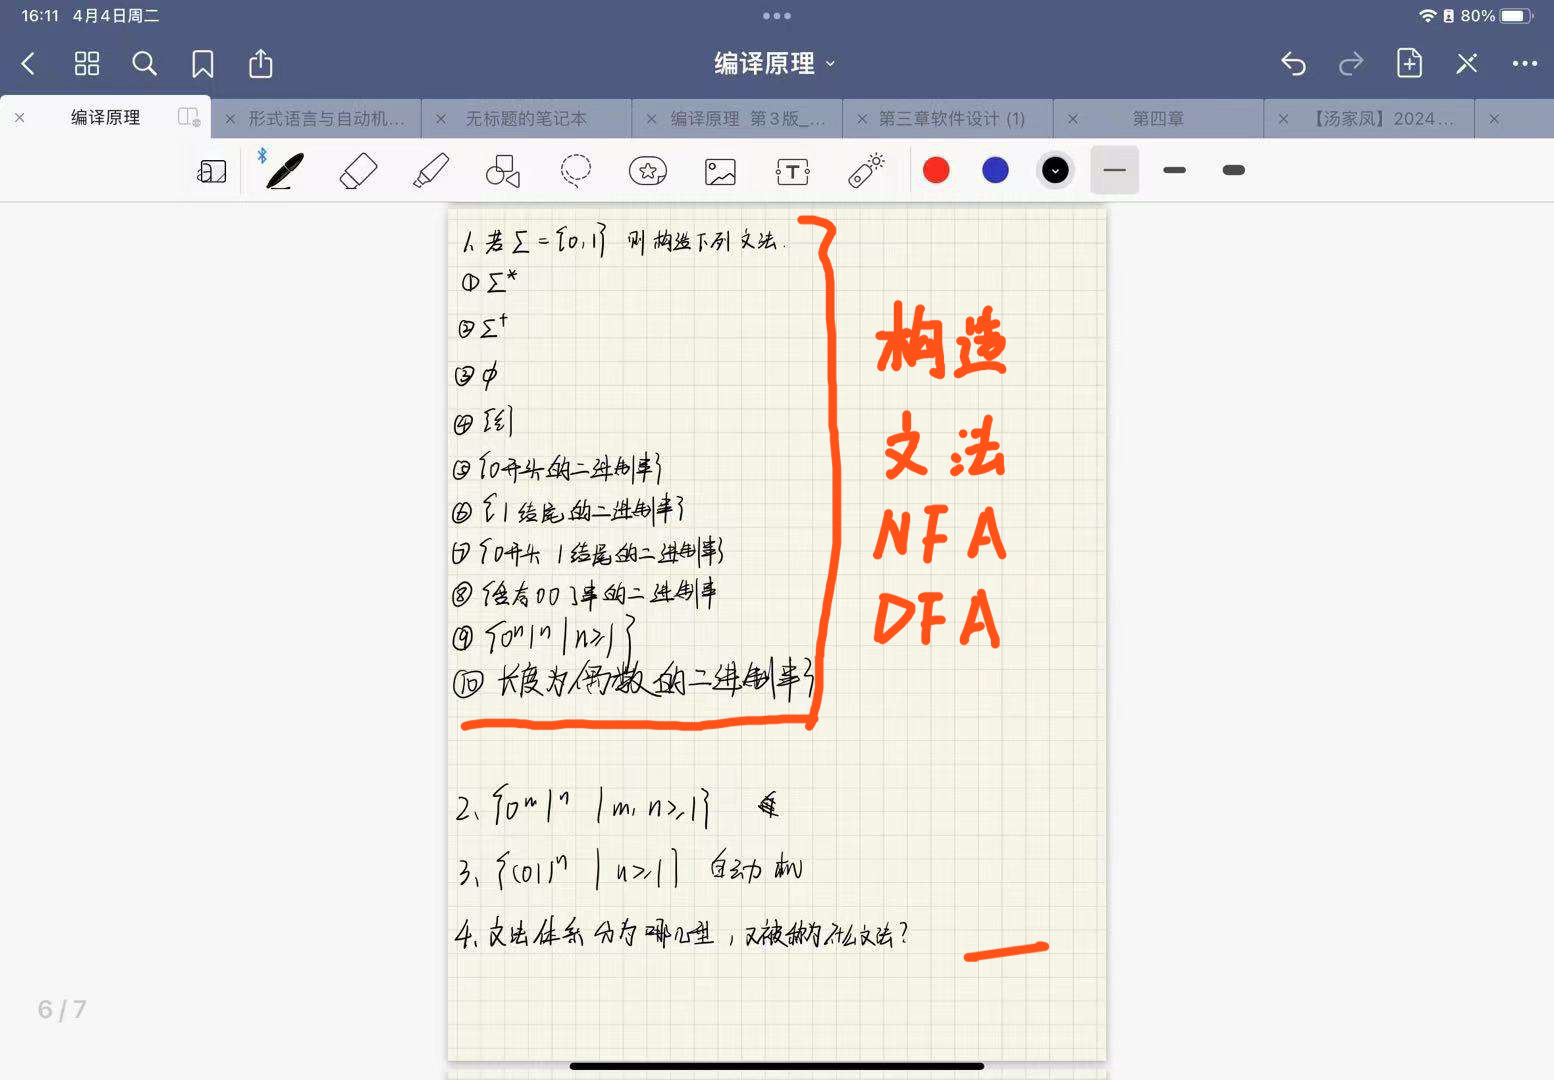 16:11 4月4日周二
80%
编译原理
编译原理
形式语言与自动机...
无标题的笔记本
编译原理 第3版_...
第三章软件设计 (1)
第四章
【汤家凤】2024...
1、若Σ={0,1} 则构造下列文法.
① Σ*
② Σ+
③ φ
④ {ε}
⑤ {0开头的二进制串}
⑥ {1结尾的二进制串}
⑦ {0开头 1结尾的二进制串}
⑧ {含有00子串的二进制串
⑨ {0ⁿ1ⁿ|n≥1}
⑩ 长度为偶数的二进制串}
构造
文法
NFA
DFA
2、{0ᵐ1ⁿ |m,n≥1}
3、{(01)ⁿ | n≥1} 自动机
4、文法体系分为哪几型,又被称为什么文法?
6/7